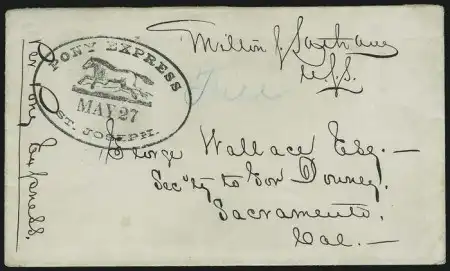 Milton S. Latham
U.S.S.
Free
PONY EXPRESS
MAY 27
ST. JOSEPH.
per Pony Express.
George Wallace Esq. —
Sec'ty to Gov Downey.
Sacramento.
Cal. —